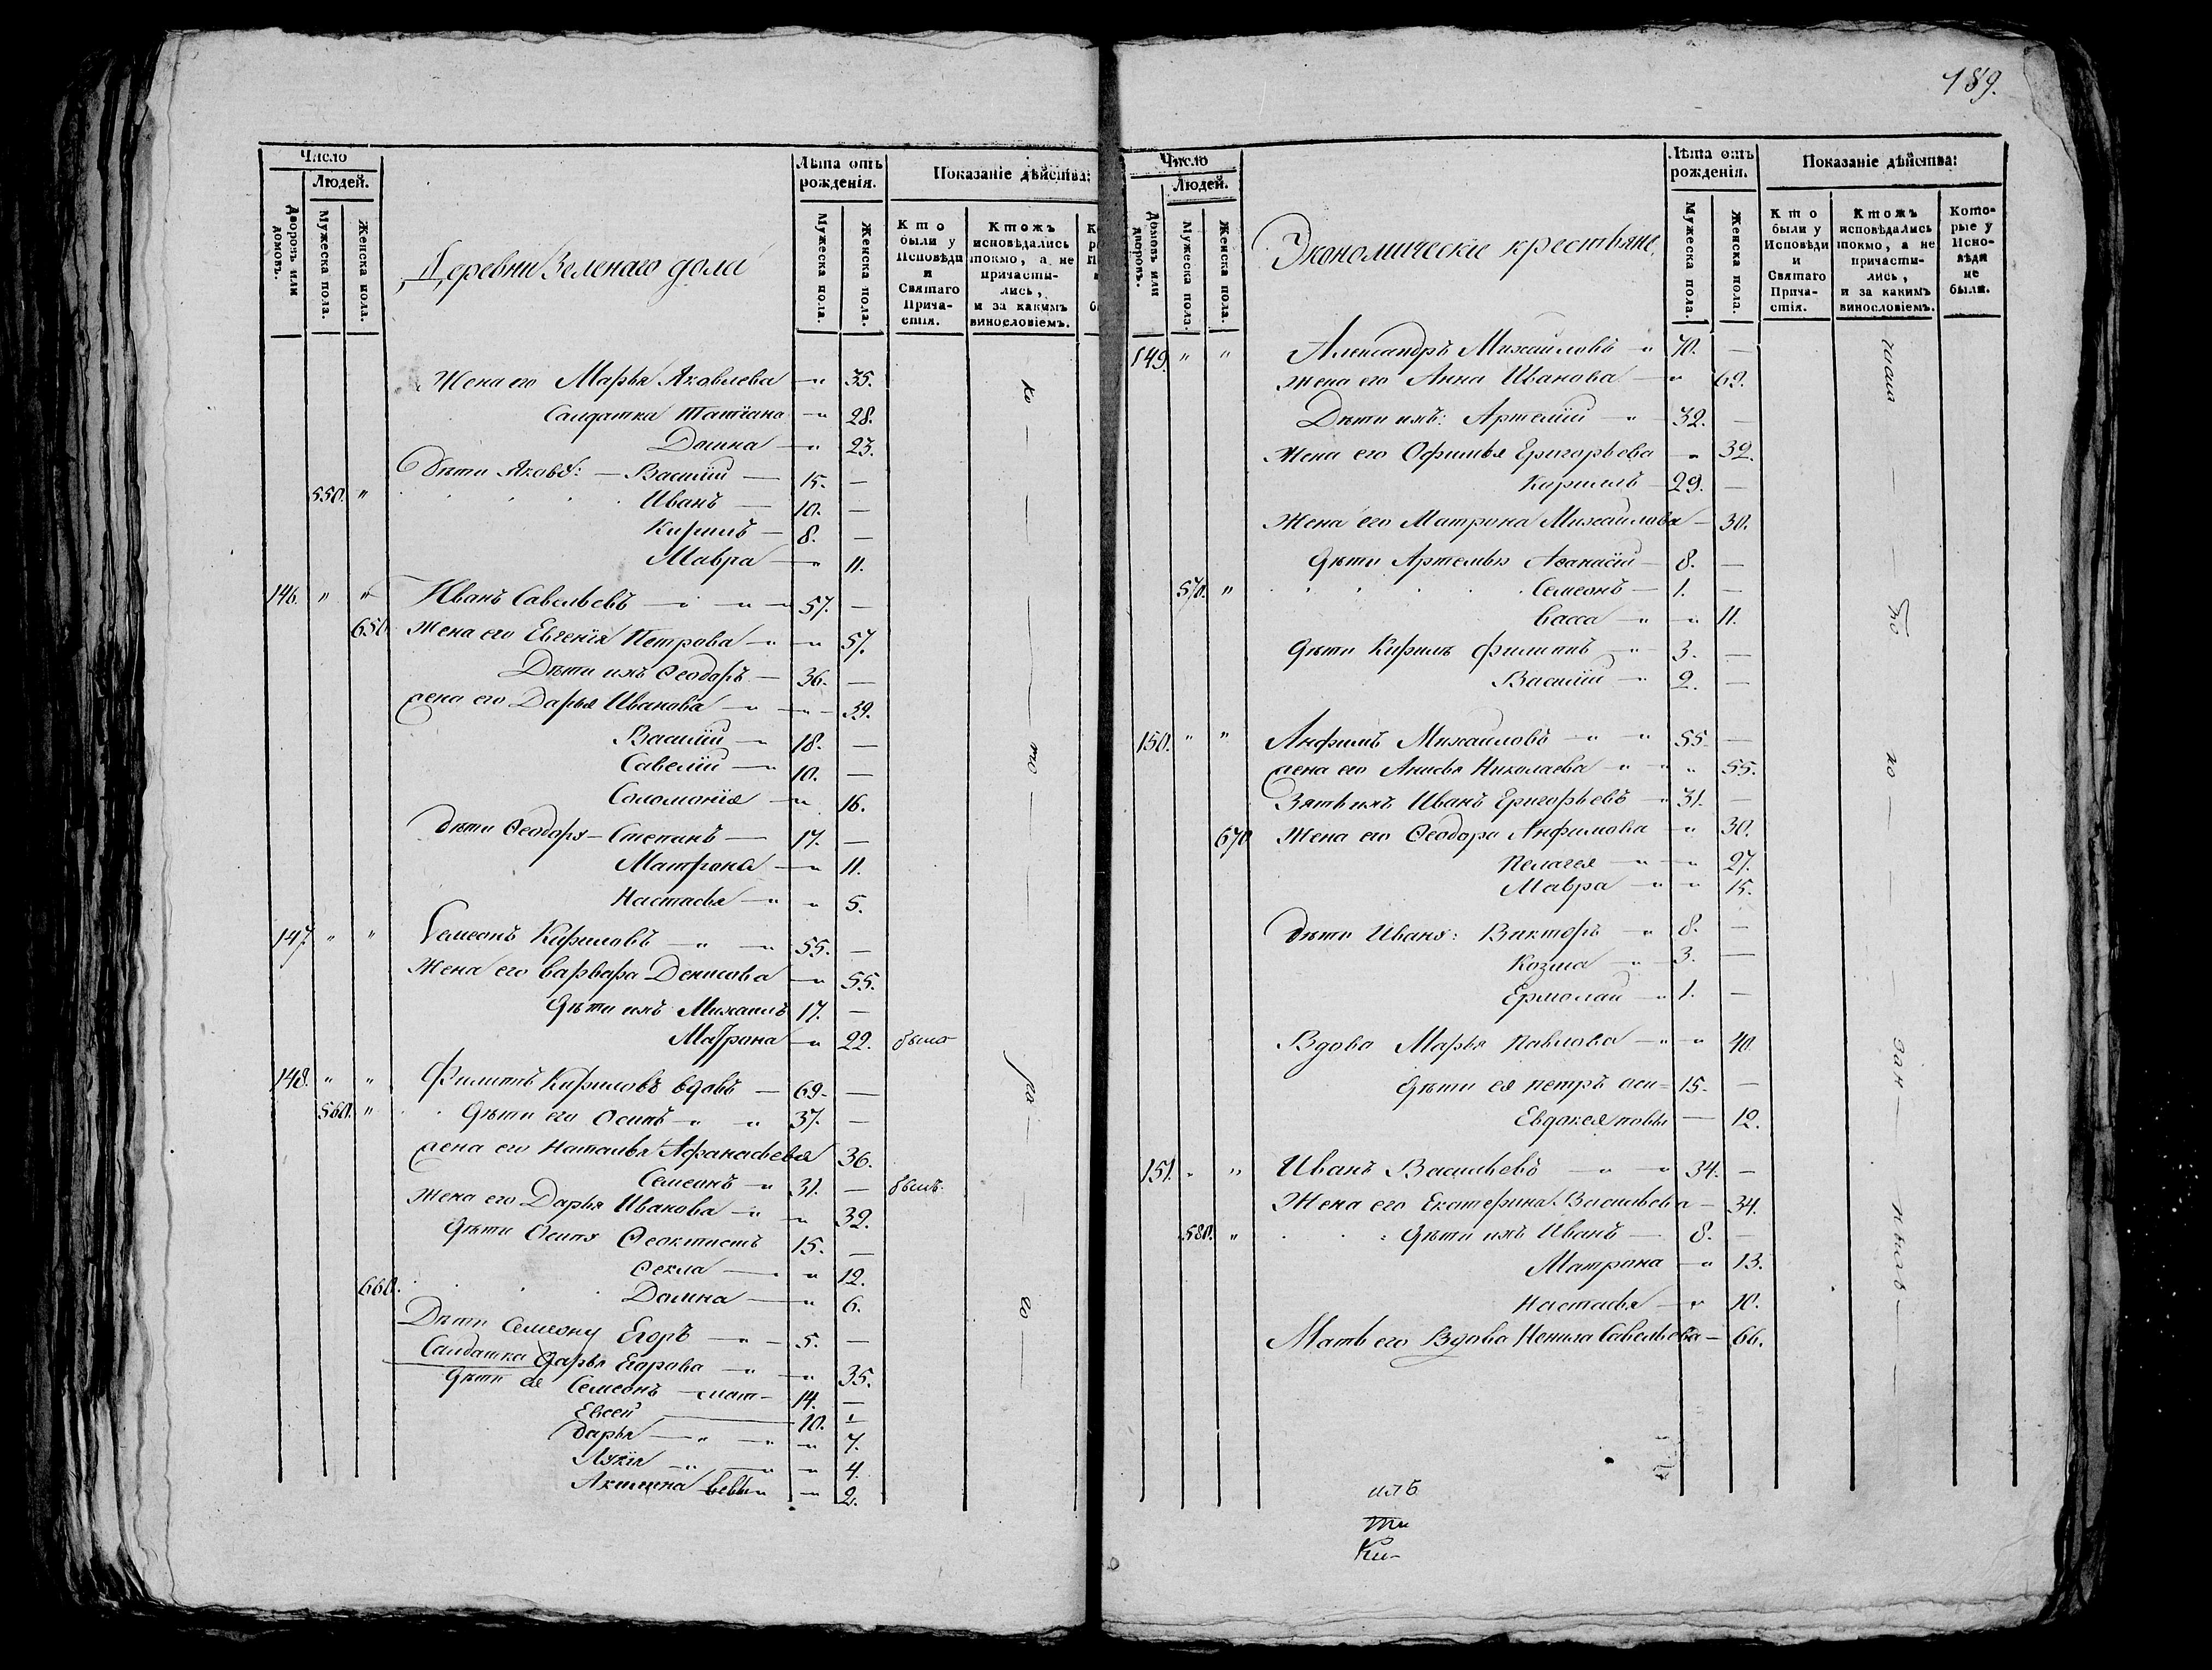 189.
Число
Людей.
Дворовъ или домовъ.
Мужеска пола.
Женска пола.
Деревни Зеленаго дола
Лѣта отъ рожденія.
Мужеска пола.
Женска пола.
Показаніе дѣйства:
Кто были у Исповѣди и Святаго Причастія.
Ктожъ исповѣдались токмо, а не причастились, и за какимъ винословіемъ.
Жена его Марья Яковлева — 35.
Салдатка Татіана — 28.
Домна — 23.
Дѣти Якова: — Василій — 15. —
550. " Иванъ — 10. —
Кирилъ — 8. —
Мавра — 11.
146. " " Иванъ Савельевъ — 57. —
650 Жена его Евгенія Петрова — 57.
Дѣти ихъ Ѳеодоръ — 36. —
жена его Дарья Иванова — 39.
Василій — 18. —
Савелій — 10. —
Соломонія — 16.
дѣти Ѳеодора — Степанъ — 17. —
Матрона — 11.
Настасья — 5.
147. " " Семеонъ Кириловъ — 55. —
Жена его варвара Денисова — 55.
Дѣти ихъ Михаилъ 17. —
Матрона — 22. была
148. " " Филиппъ Кириловъ вдовъ — 69. —
560. " Дѣти его Осипъ — 37. —
жена его Наталья Афанасьева 36.
Семеонъ — 31. — былъ.
Жена его Дарья Иванова — 32.
Дѣти Осипа Ѳеоктистъ 15. —
Ѳекла — 12.
660. Домна — 6.
Дѣти Семеону Егоръ — 5. —
Салдатка Дарья Егорова — 35.
Дѣти ея Семеонъ — 14. —
Евсей — 10.
дарья — 7.
Лукія — 4.
Акилина — 2.
Число
Людей.
Домовъ или дворовъ.
Мужеска пола.
Женска пола.
Экономическіе крестьяне.
Лѣта отъ рожденія.
Мужеска пола.
Женска пола.
Показаніе дѣйства:
Кто были у Исповѣди и Святаго Причастія.
Ктожъ исповѣдались токмо, а не причастились, и за какимъ винословіемъ.
Которые у Исповѣди не были.
149. " " Александръ Михайловъ — 70. —
Жена его Анна Иванова — 69.
Дѣти ихъ: Артемій — 32. —
Жена его Офимья Григорьева — 32.
Кирилъ — 29. —
Жена его Матрона Михайлова — 30.
Дѣти Артемья Аѳанасій — 8. —
570. " Семеонъ — 1. —
Васса — 11.
Дѣти Кирилъ Филиппъ — 3. —
Василій — 2. —
150. " " Анфимъ Михайловъ — 55. —
жена его Анисья Николаева — 55.
Зять ихъ Иванъ Григорьевъ — 31. —
670 Жена его Ѳеодора Анфимова — 30.
Пелагея — 27.
Мавра — 15.
дѣти Ивана: Викторъ — 8. —
Козма — 3. —
Ермолай — 1. —
Вдова Марья Павлова — 40.
Дѣти ея петръ оси= 15. —
Евдокея повы — 12.
151. " " Иванъ Васильевъ — 34. —
Жена его Екатерина Васильева — 34.
580. " Дѣти ихъ Иванъ — 8. —
Матрона — 13.
Настасья — 10.
Мать его Вдова Савельева — 66.